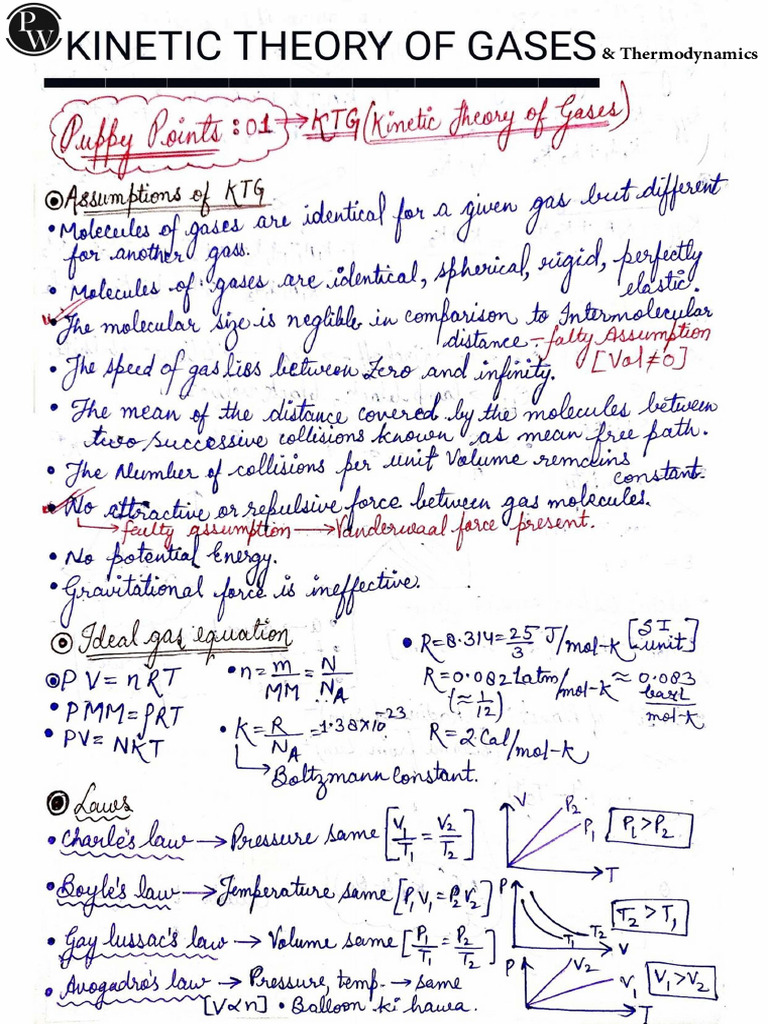 PW
KINETIC THEORY OF GASES & Thermodynamics
Puppy Points : 01 → KTG (Kinetic Theory of Gases)
Assumptions of KTG
• Molecules of gases are identical for a given gas but different
for another gass.
• Molecules of gases are identical, spherical, rigid, perfectly
elastic.
• The molecular size is neglible in comparison to Intermolecular
distance - falty Assumption
[Vol ≠ 0]
• The speed of gas liss between Zero and infinity.
• The mean of the distance covered by the molecules between
two successive collisions known as mean free path.
• The Number of collisions per unit Volume remains
constant.
• No attractive or repulsive force between gas molecules.
↳ faulty assumption → Vanderwaal force present.
• No potential Energy.
• Gravitational force is ineffective.
Ideal gas equation
PV = nRT
• PMM = ρRT
• PV = NKT
• n = m/MM = N/NA
• K = R/NA = 1.38×10^-23
↳ Boltzmann Constant.
• R = 8.314 = 25/3 J/mol-K [SI unit]
R = 0.082 Latm/mol-K ≈ 0.083 barL/mol-K
(≈ 1/12)
R = 2 Cal/mol-K
Laws
• Charle's law → Pressure same [V1/T1 = V2/T2]
V P2 P1 T
P1 > P2
• Boyle's law → Temperature same [P1V1 = P2V2]
P T1 T2 V
T2 > T1
• Gay lussac's law → Volume same [P1/T1 = P2/T2]
P V2 V1 T
V1 > V2
• Avogadro's law → Pressure, temp. → same
[V∝n] • Balloon ki hawa.